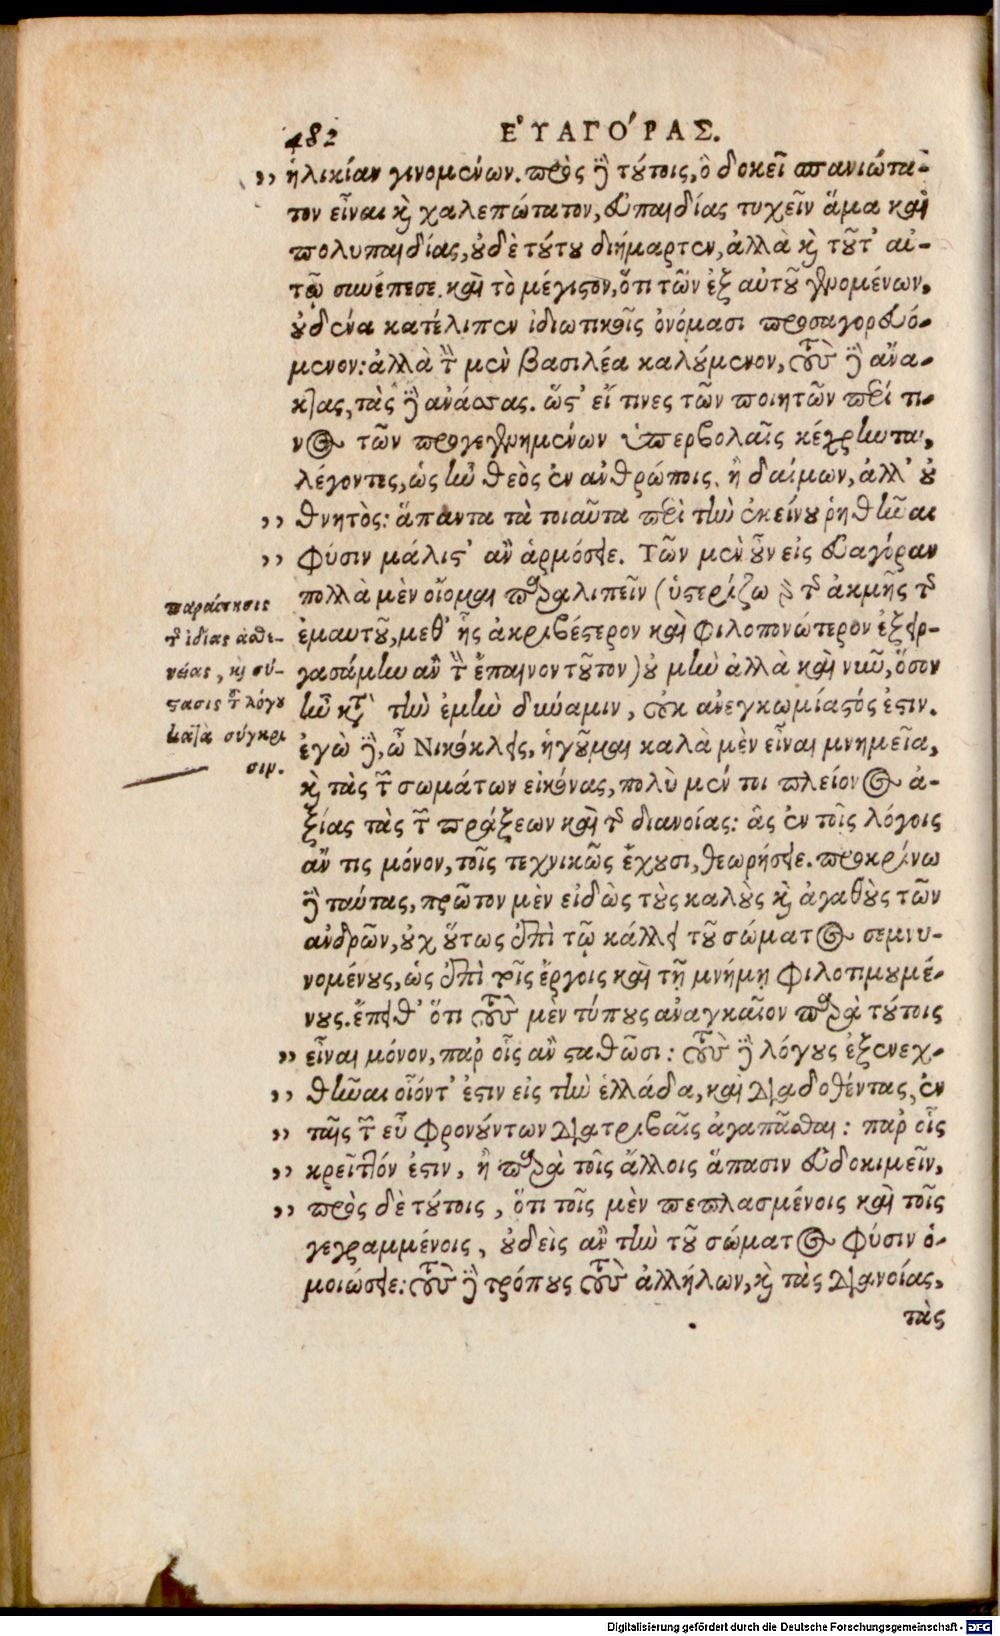 482 ΕὐΑΓΌΡΑΣ.
ἡλικίαν γινομένων. πρὸς δὲ τούτοις, ὃ δοκεῖ σπανιώτα-
τον εἶναι καὶ χαλεπώτατον, εὐπαιδίας τυχεῖν ἅμα καὶ
πολυπαιδίας, οὐδὲ τούτου διήμαρτεν, ἀλλὰ καὶ τοῦτ' αὐ-
τῷ συνέπεσε. καὶ τὸ μέγιστον, ὅτι τῶν ἐξ αὐτοῦ γενομένων,
οὐδένα κατέλιπεν ἰδιωτικοῖς ὀνόμασι προσαγορευό-
μενον: ἀλλὰ τὸν μὲν βασιλέα καλούμενον, τοὺς δὲ ἄνα-
κτας, τὰς δὲ ἀνάσσας. ὥστ' εἴ τινες τῶν ποιητῶν περί τι-
νος τῶν προγεγενημένων ὑπερβολαῖς κέχρηνται,
λέγοντες, ὡς ἦν θεὸς ἐν ἀνθρώποις, ἢ δαίμων, ἀλλ' οὐ
θνητὸς: ἅπαντα τὰ τοιαῦτα περὶ τὴν ἐκείνου ῥηθῆναι
φύσιν μάλιστ' ἂν ἁρμόσειε. Τῶν μὲν οὖν εἰς Εὐαγόραν
πολλὰ μὲν οἴομαι παραλιπεῖν (ὑστερίζω γὰρ τῆς ἀκμῆς τῆς
ἐμαυτοῦ, μεθ' ἧς ἀκριβέστερον καὶ φιλοπονώτερον ἐξειρ-
γασάμην ἂν τὸν ἔπαινον τοῦτον) οὐ μὴν ἀλλὰ καὶ νῦν, ὅσον
ἦν κατὰ τὴν ἐμὴν δύναμιν, οὐκ ἀνεγκωμίαστός ἐστιν.
ἐγὼ δὲ, ὦ Νικόκλεις, ἡγοῦμαι καλὰ μὲν εἶναι μνημεῖα,
καὶ τὰς τῶν σωμάτων εἰκόνας, πολὺ μέν τοι πλείονος ἀ-
ξίας τὰς τῶν πράξεων καὶ τῆς διανοίας: ἃς ἐν τοῖς λόγοις
ἄν τις μόνον, τοῖς τεχνικῶς ἔχουσι, θεωρήσειε. προκρίνω
δὲ ταύτας, πρῶτον μὲν εἰδὼς τοὺς καλοὺς καὶ ἀγαθοὺς τῶν
ἀνδρῶν, οὐχ οὕτως ἐπὶ τῷ κάλλει τοῦ σώματος σεμνυ-
νομένους, ὡς ἐπὶ τοῖς ἔργοις καὶ τῇ μνήμῃ φιλοτιμουμέ-
νους. ἔπειθ' ὅτι τοὺς μὲν τύπους ἀναγκαῖον παρὰ τούτοις
εἶναι μόνον, παρ' οἷς ἂν σταθῶσι: τοὺς δὲ λόγους ἐξενεχ-
θῆναι οἷόντ' ἐστιν εἰς τὴν ἑλλάδα, καὶ διαδοθέντας, ἐν
ταῖς τῶν εὖ φρονούντων διατριβαῖς ἀγαπᾶσθαι: παρ' οἷς
κρεῖττόν ἐστιν, ἢ παρὰ τοῖς ἄλλοις ἅπασιν εὐδοκιμεῖν,
πρὸς δὲ τούτοις, ὅτι τοῖς μὲν πεπλασμένοις καὶ τοῖς
γεγραμμένοις, οὐδεὶς ἂν τὴν τοῦ σώματος φύσιν ὁ-
μοιώσειε: τοὺς δὲ τρόπους τοὺς ἀλλήλων, καὶ τὰς διανοίας,
τὰς
παράστησις
τῆς ἰδίας ἀσθε-
νείας, καὶ σύ-
στασις τοῦ λόγου
κατὰ σύγκρι
σιν.
Digitalisierung gefördert durch die Deutsche Forschungsgemeinschaft - DFG